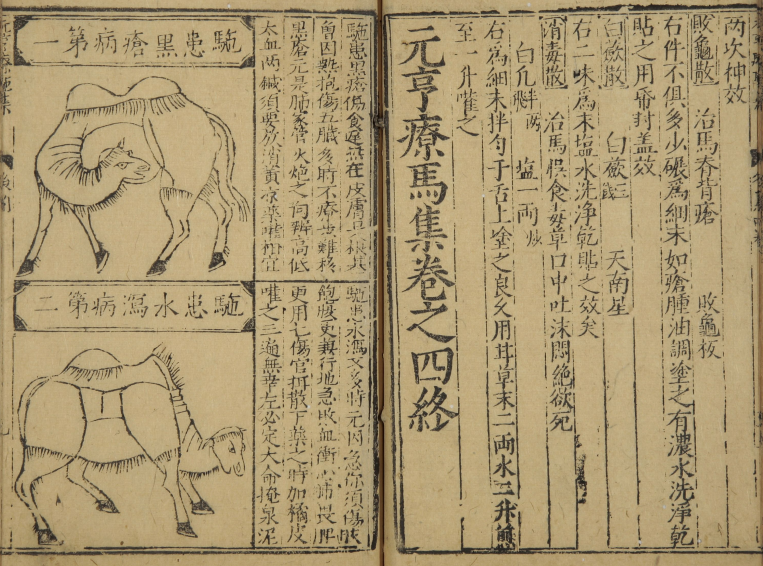 兩次神效
敗龜散 治馬脊背瘡 敗龜板
右件不俱多少碾爲細末如瘡腫油調塗之有濃水洗淨乾
貼之用帋封盖效
白蘞散 白蘞 天南星
右二味爲末塩水洗淨乾貼之效矣
消毒散 治馬悞食毒草口中吐沫悶絶欲死
白凢 塩一兩
右爲細末拌勻于舌上塗之良久用甘草末二兩水二升煎
至一升嚾之
元亨療馬集卷之四終
駞患黑瘡病第一
駞患黑瘡傷食遲無在皮膚
肓因熱抱傷五臟多時不療
黑瘡元是肺家管火炮之向辨高低
太血兩鹹須要
駞患水瀉病第二
駞患水瀉 多時元因急
飽 更兼行地急敗血衝心
更用七傷官 散下藥之時加橘皮
嚾之三遍無 左必定大命掩泉泥